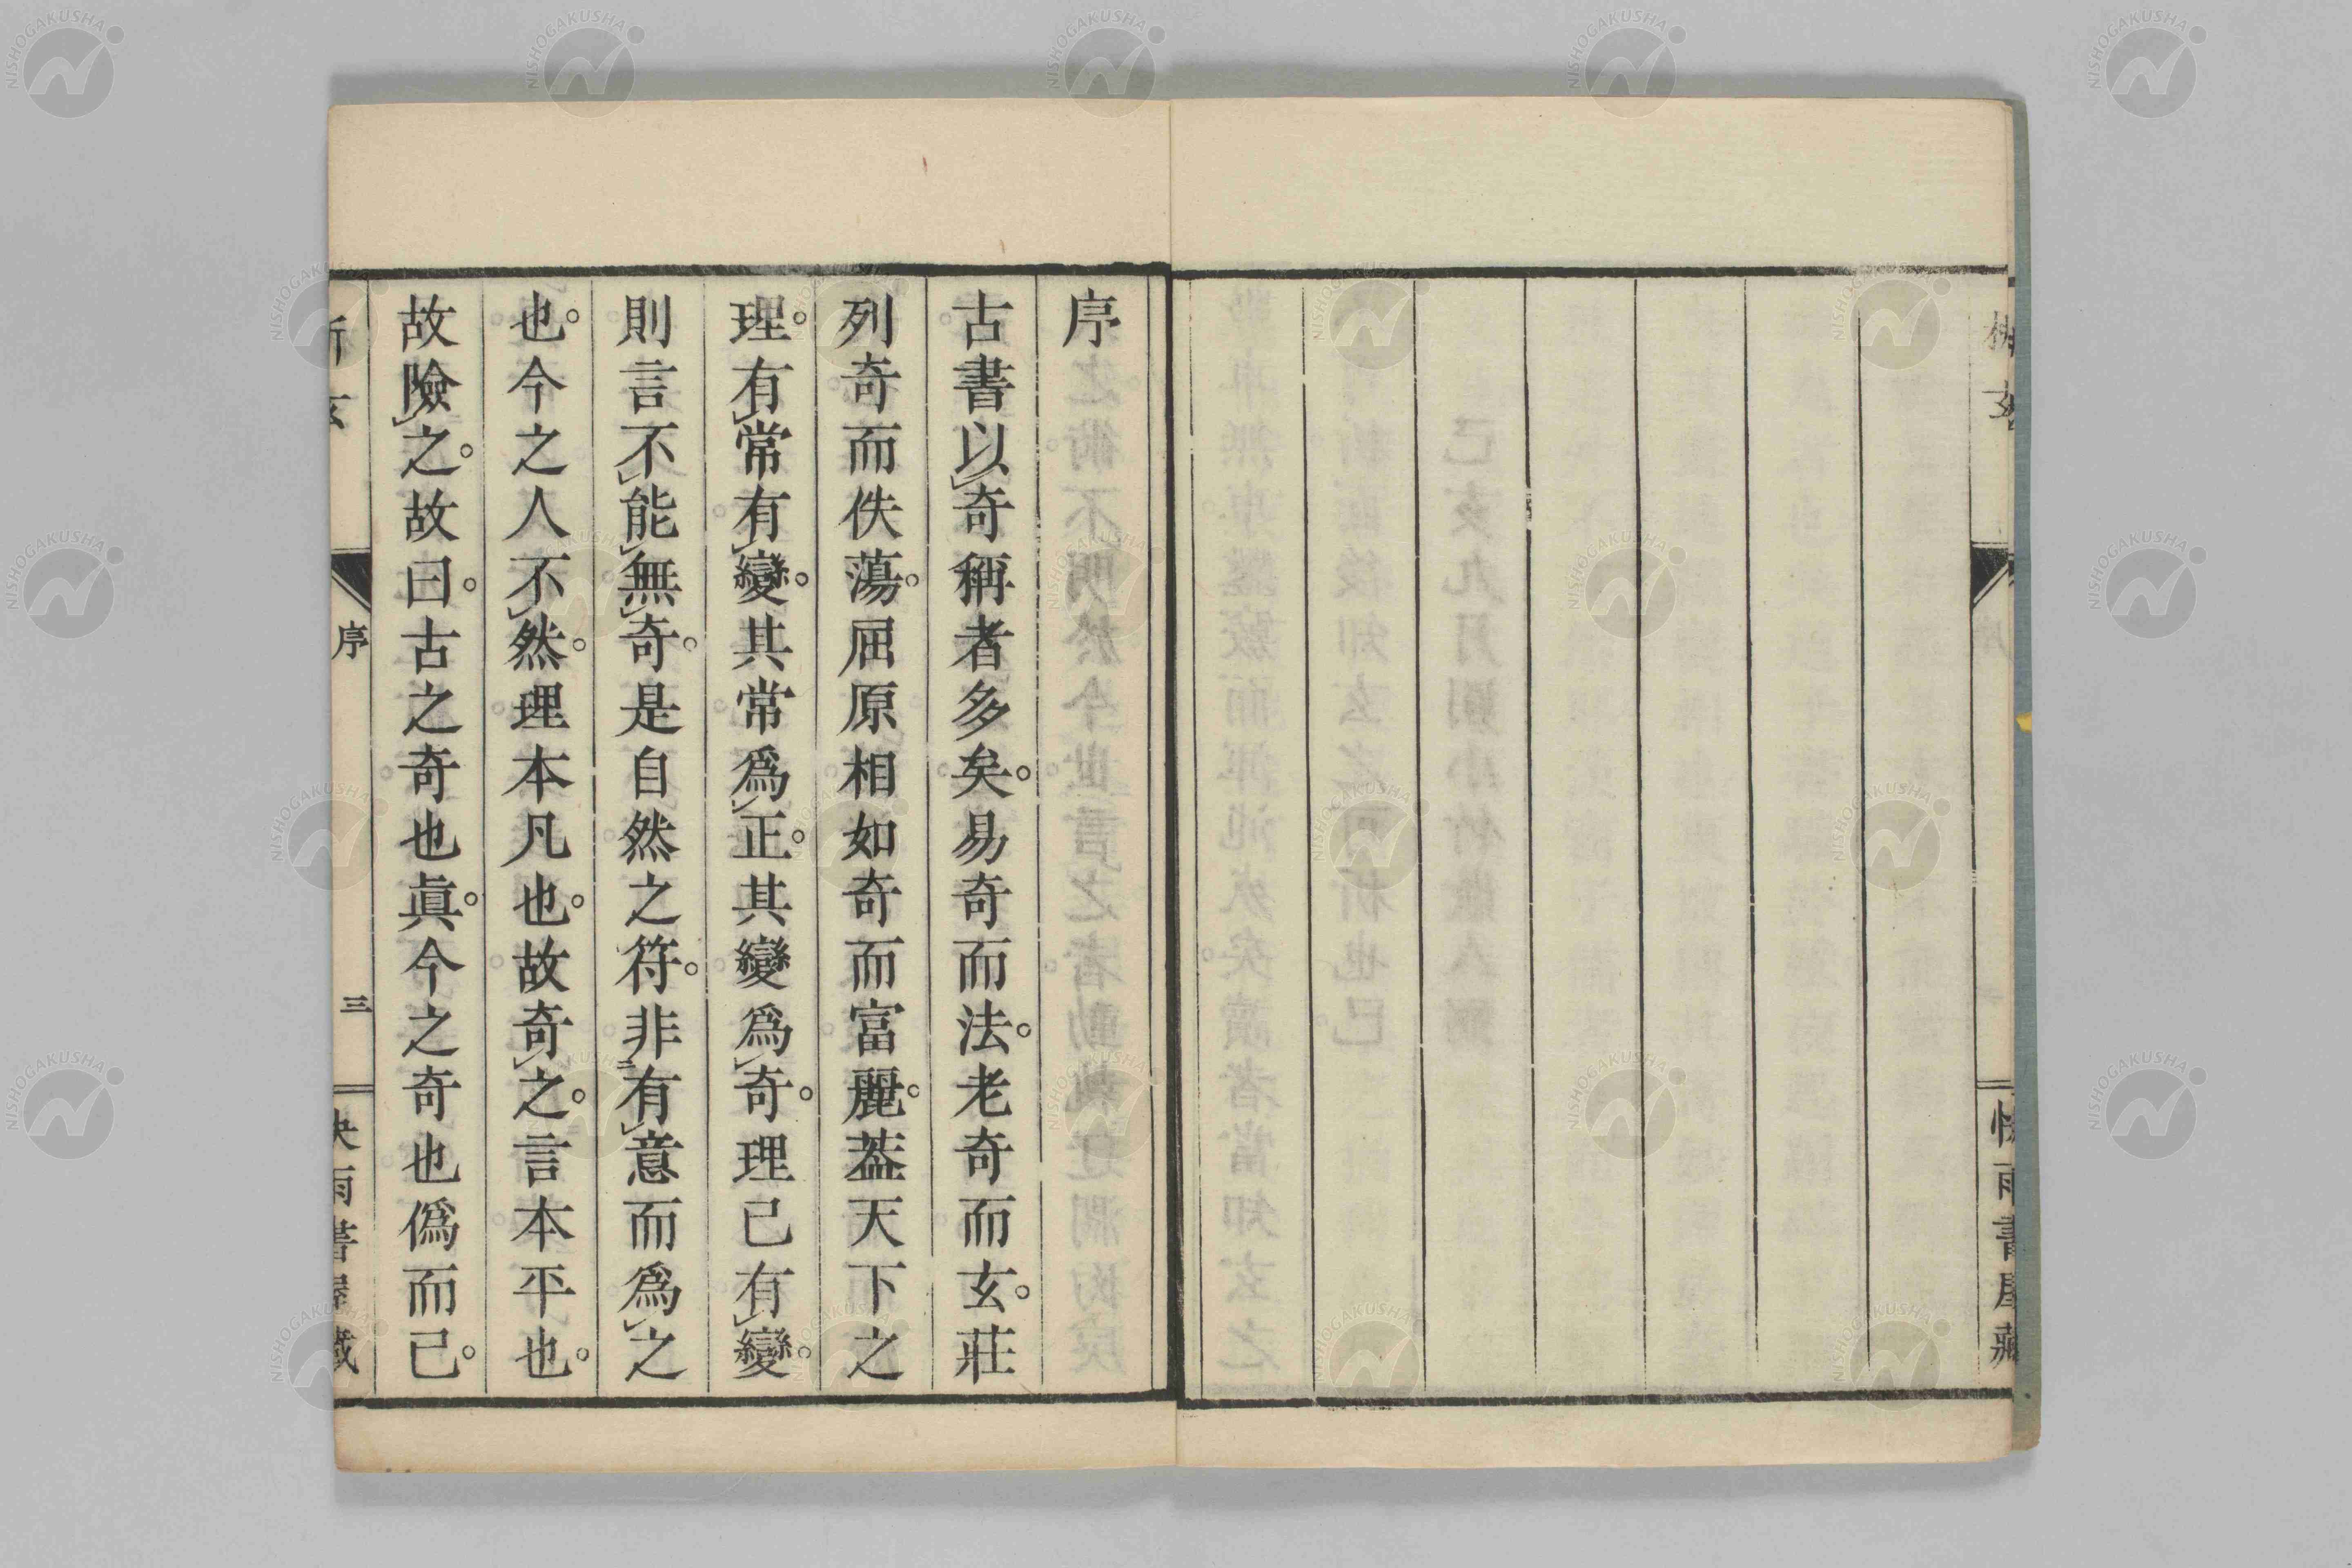 序
古書以奇稱者多矣。易奇而法。老奇而玄。莊
列奇而佚蕩。屈原相如奇而富麗。葢天下之
理。有常有變。其常爲正。其變爲奇。理已有變。
則言不能無奇。是自然之符。非有意而爲之
也。今之人不然。理本凡也。故奇之。言本平也。
故險之。故曰。古之奇也眞。今之奇也僞而已。
析玄
序
三
快雨書屋藏
析玄
快雨書屋藏
NISHOGAKUSHA